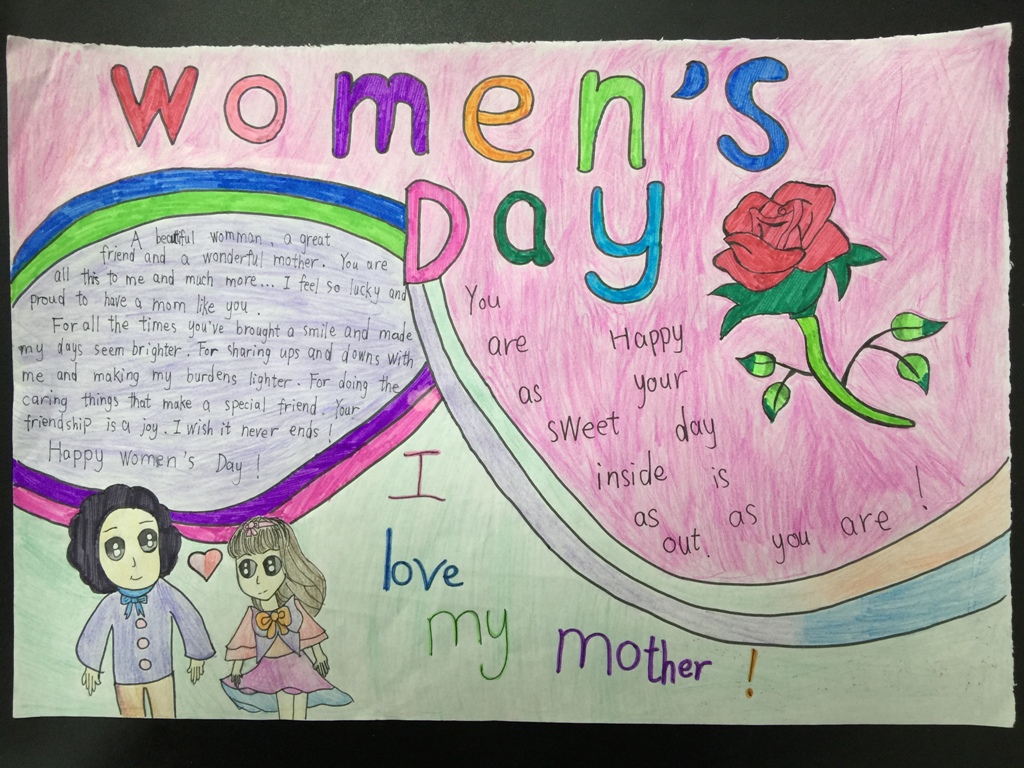 Women's
Day
A beatiful womman, a great
friend and a wonderful mother. You are
all this to me and much more... I feel so lucky and
proud to have a mom like you.
For all the times you've brought a smile and made
my days seem brighter. For sharing ups and downs with
me and making my burdens lighter. For doing the
caring things that make a special friend. Your
friendship is a joy. I wish it never ends!
Happy Women's Day!
You
are
as
sweet
inside
as
out.
Happy
your
day
is
as
you are!
I
love
my
mother!